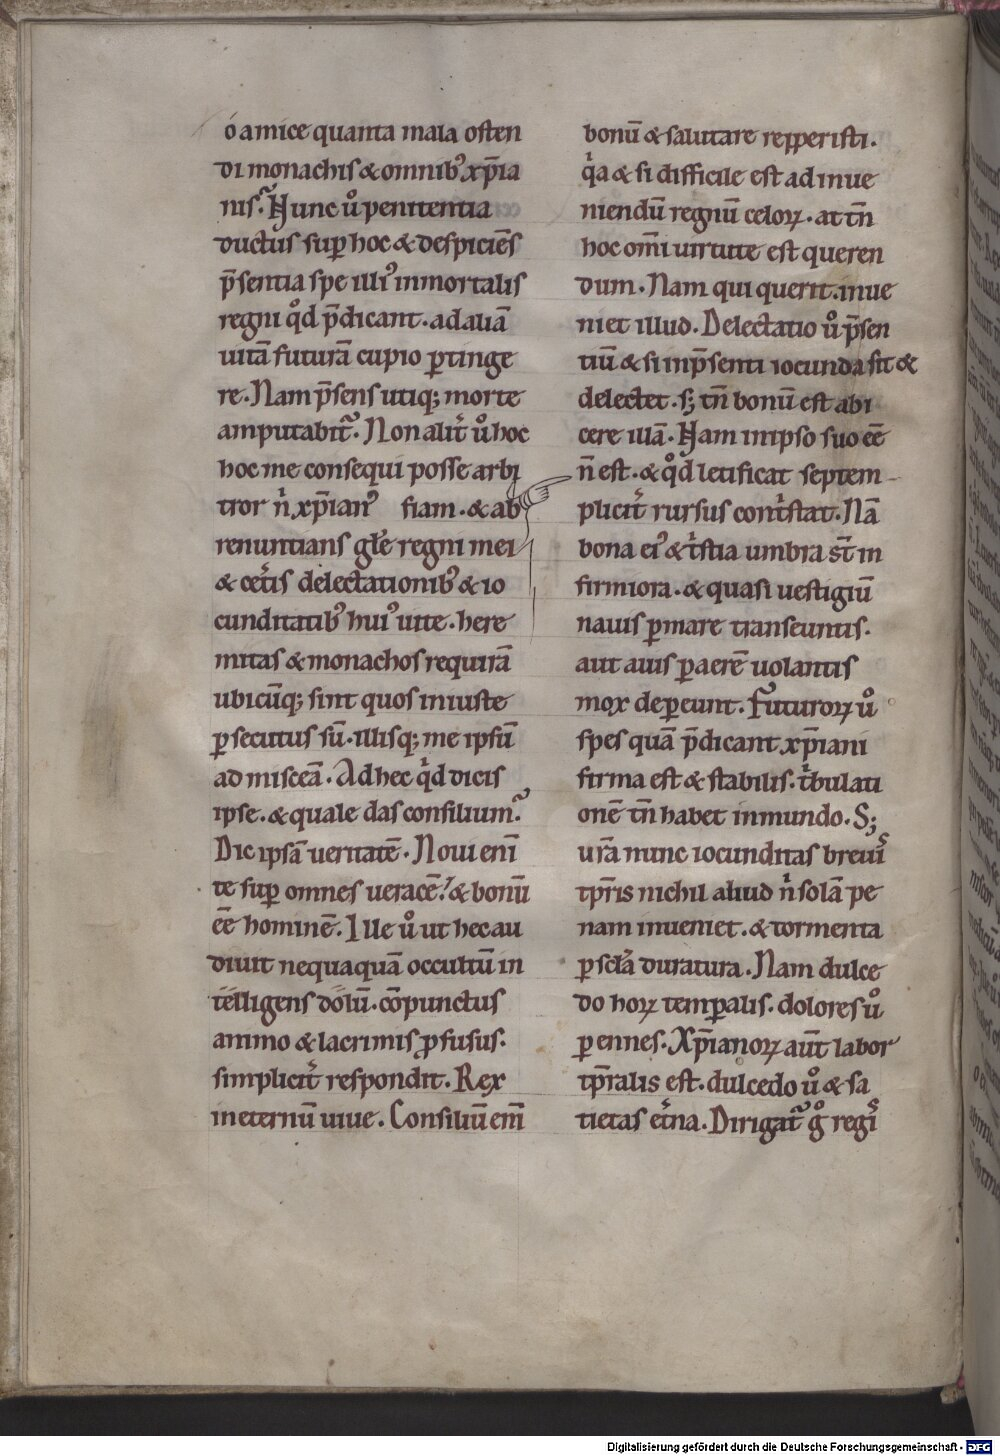 o amice quanta mala osten
di monachis & omnibꝰ xp̄ia
nis. Nunc u̾o penitentia
ductus sup̱ hoc & despiciēs
p̄sentia spe illiꝰ inmortalis
regni qͦd p̄dicant. ad aliā
uitā futurā cupio ꝑtinge
re. Nam p̄sens utiqꝫ morte
amputabit᷑. Non alit̾ uͦ hoc
hoc me consequi posse arbi
tror nͥ xp̄ianꝰ fiam. & ab
renuntians głe regni mei
& cet̾is delectationibꝰ & io
cunditatibꝰ huiꝰ uite. here
mitas & monachos requirā
ubicūqꝫ sint quos iniuste
ꝑsecutus sū. illisqꝫ me ipsū
ad misceā. Ad hec qͥd dicis
ipse. & quale das consilium?
Dic ipsā ueritatē. Noui enī
te suꝑ omnes ueracē & bonū
eē hominē. Ille uͦ ut hec au
diuit nequaquā occultū in
telligens dolū. cōpunctus
animo & lacrimis ꝓfusus.
simplicit̾ respondit. Rex
in eternū uiue. Consiliū enī
bonū & salutare repperisti.
qͥa & si difficile est ad inue
niendū regnū celoꝝ. at tn̄
hoc omī uirtute est queren
dum. Nam qui querit. inue
niet illud. Delectatio uͦ p̄sen
tiū & si in p̄senti iocunda sit &
delectet. sꝫ tn̄ bonū est abi
cere illā. Nam in ipso suo eē
n̄ est. & qͦd letificat septem
plicit̾ rursus contͥstat. Nā
bona eiꝰ & tͥstia umbra st̄ in
firmiora. & quasi uestigiū
nauis ꝑ mare transeuntis.
aut auis ꝑ aerē uolantis
mox depereunt. Futuroꝝ uͦ
spes quā p̄dicant xp̄iani
firma est & stabilis. tͥbulati
onē tn̄ habet in mundo. Sꝫ
ur̄a nunc iocunditas breui
tp̄ris nichil aliud nͥ solā pe
nam inueniet. & tormenta
ꝑ scła duratura. Nam dulce
do hoꝝ temꝑalis. dolores uͦ
ꝑennes. Xp̄ianoꝝ aūt labor
tp̄ralis est. dulcedo uͦ & sa
tietas et̾na. Dirigat᷑ gͦ regis
Digitalisierung gefördert durch die Deutsche Forschungsgemeinschaft - DFG